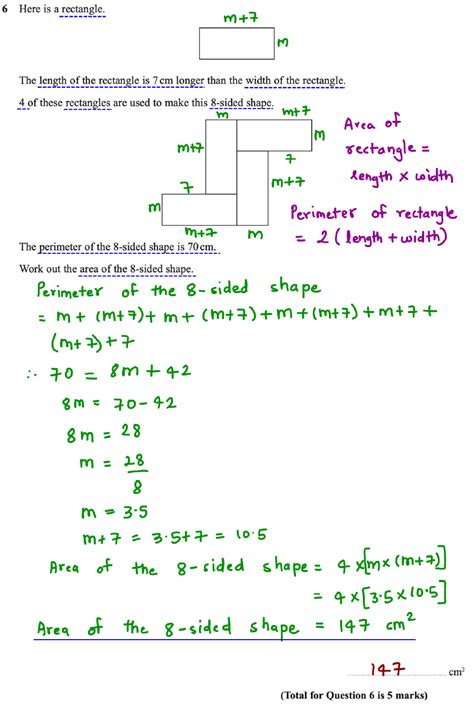 6 Here is a rectangle.
m+7
m
The length of the rectangle is 7 cm longer than the width of the rectangle.
4 of these rectangles are used to make this 8-sided shape.
m
m+7
m
m+7
7
7
m+7
m
m+7
m
Area of
rectangle =
length × width
Perimeter of rectangle
= 2 ( length + width)
The perimeter of the 8-sided shape is 70 cm.
Work out the area of the 8-sided shape.
Perimeter of the 8-sided shape
= m + (m+7) + m + (m+7) + m + (m+7) + m+7 +
(m+7) + 7
∴ 70 = 8m + 42
8m = 70-42
8m = 28
m = 28
8
m = 3.5
m+7 = 3.5+7 = 10.5
Area of the 8-sided shape = 4 × [m × (m+7)]
= 4 × [3.5 × 10.5]
Area of the 8-sided shape = 147 cm²
147 cm²
(Total for Question 6 is 5 marks)